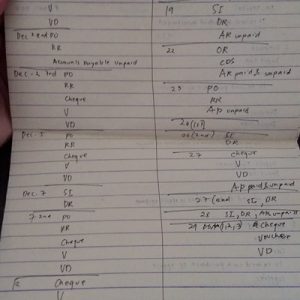 V
VD
Dec 2 2nd PO
RR
Accounts Payable unpaid
Dec. 2 3rd PO
RR
Cheque
V
VD
Dec. 5 PO
RR
Cheque
V
VD
Dec. 7 SI
DR
7 2nd PO
RR
Cheque
V
VD
Cheque
V
19 SI
DR
AR unpaid
22 OR
CDS
AR paid & unpaid
23 PO
RR
AP unpaid
26 (1st)
26 (2nd) SI
DR
27 Cheque
V
VD
AP paid & unpaid
27 (2nd) SI, DR
28 SI, DR, AR unpaid
29 Cheque
Voucher
VD